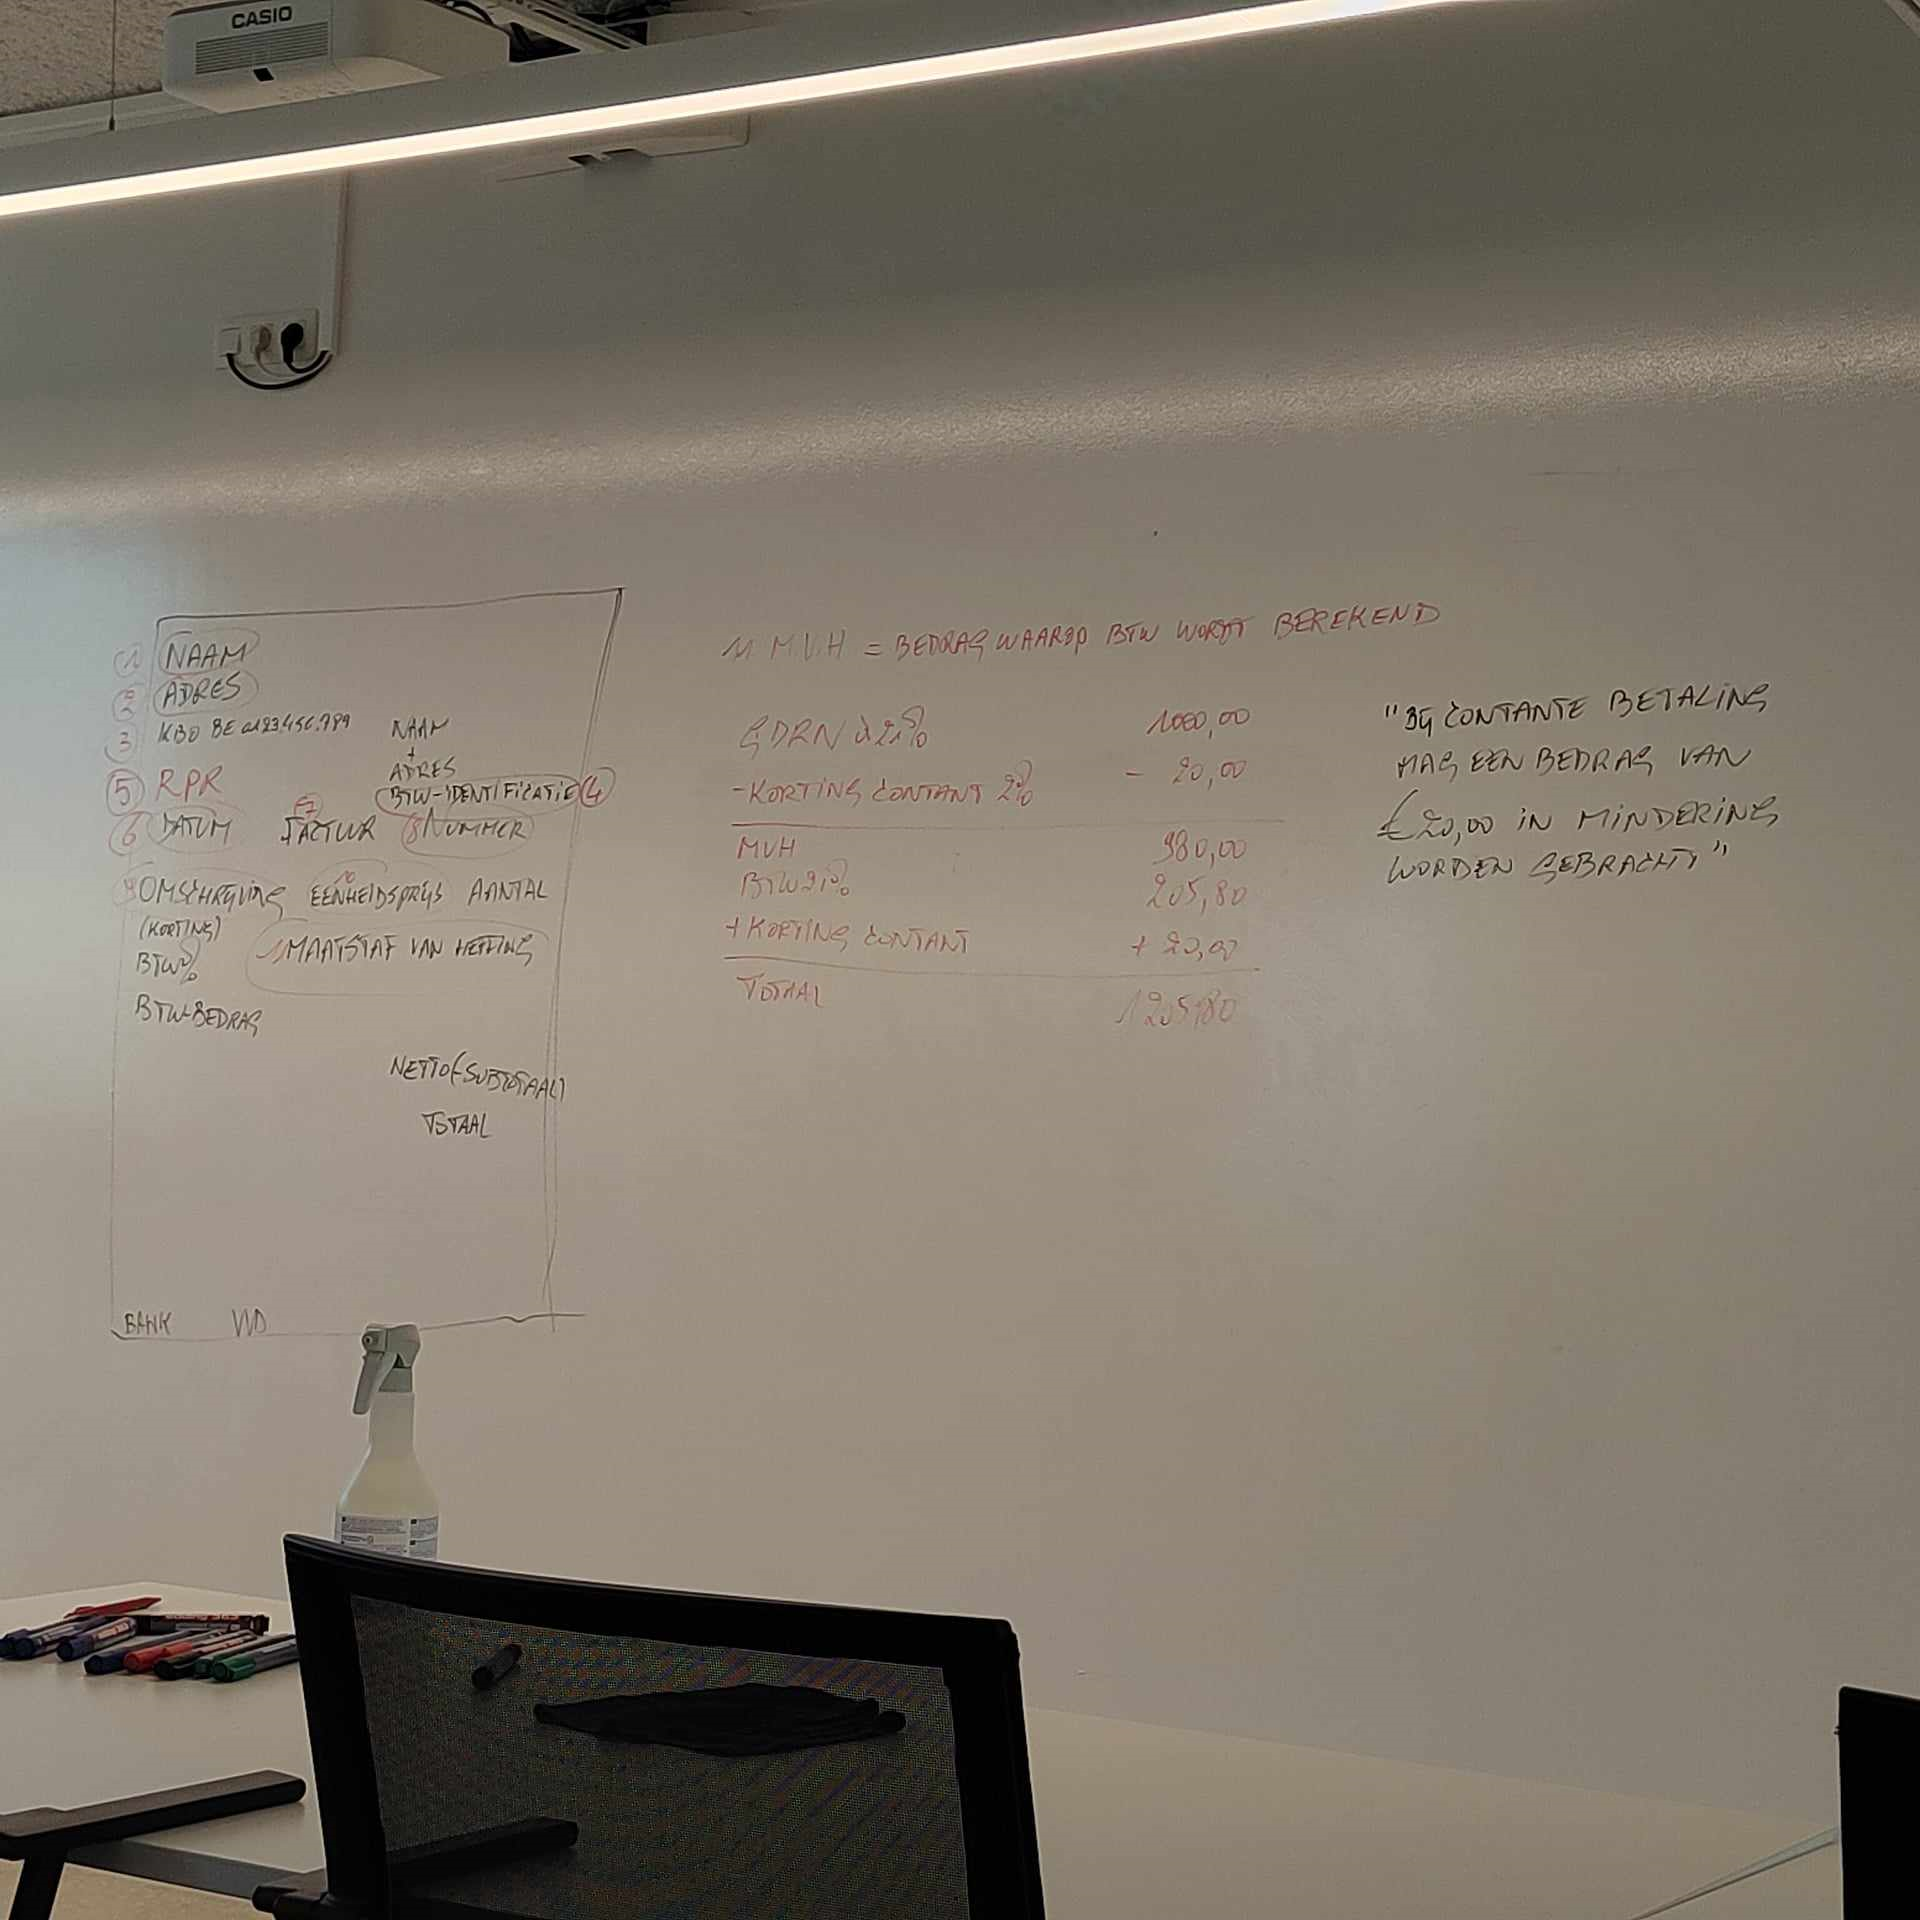 CASIO
1 NAAM
2 ADRES
3 KBO BE 0123.456.789
NAAM
+
ADRES
5 RPR
BTW-IDENTIFICATIE 4
6 DATUM 7 FACTUUR 8 NUMMER
9 OMSCHRIJVING 10 EENHEIDSPRIJS AANTAL
(KORTING)
11 MAATSTAF VAN HEFFING
BTW%
BTW-BEDRAG
NETTO(-SUBTOTAAL)
TOTAAL
BANK VVD
11 M.V.H = BEDRAG WAAROP BTW WORDT BEREKEND
GDRN à 21% 1000,00
-KORTING CONTANT 2% - 20,00
MVH 980,00
BTW 21% 205,80
+ KORTING CONTANT + 20,00
TOTAAL 1205,80
"BIJ CONTANTE BETALING
MAG EEN BEDRAG VAN
€ 20,00 IN MINDERING
WORDEN GEBRACHT"